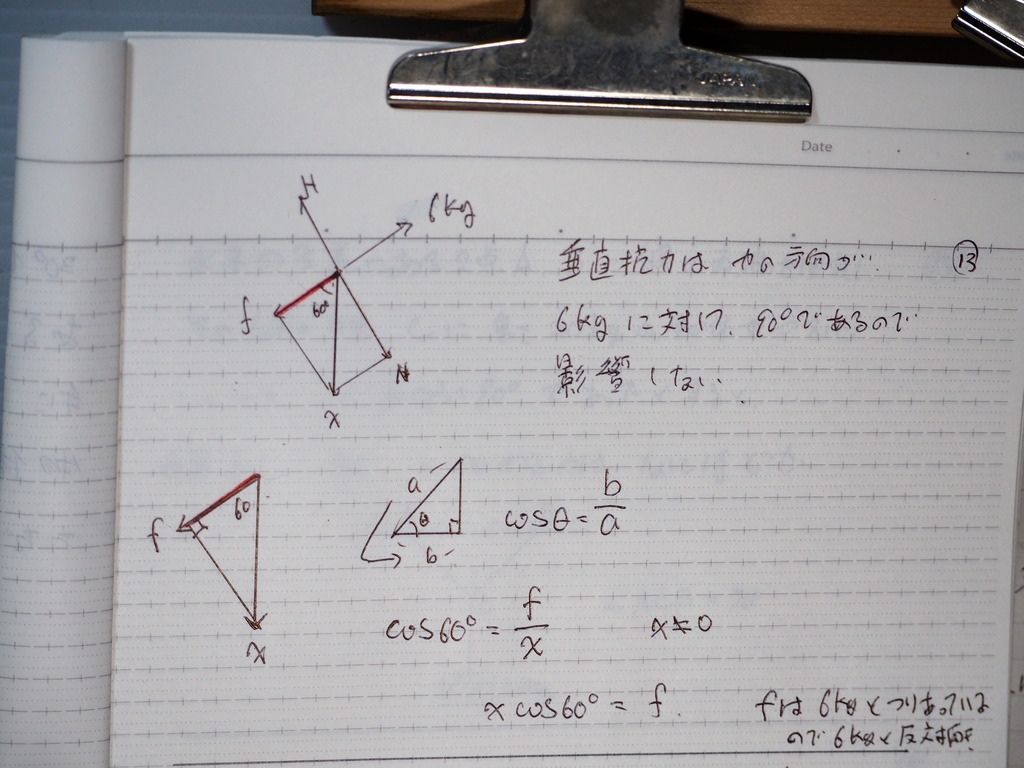 JAPAN
Date
H
6kg
垂直抗力は 力の方向が… ⑬
f
60°
6kgに対して、90°であるので
影響しない.
N
x
a
60
θ
cosθ = b/a
f
b
cos60° = f/x x≠0
x
x cos60° = f. fは6kgとつりあっている
ので6kgと反対向き